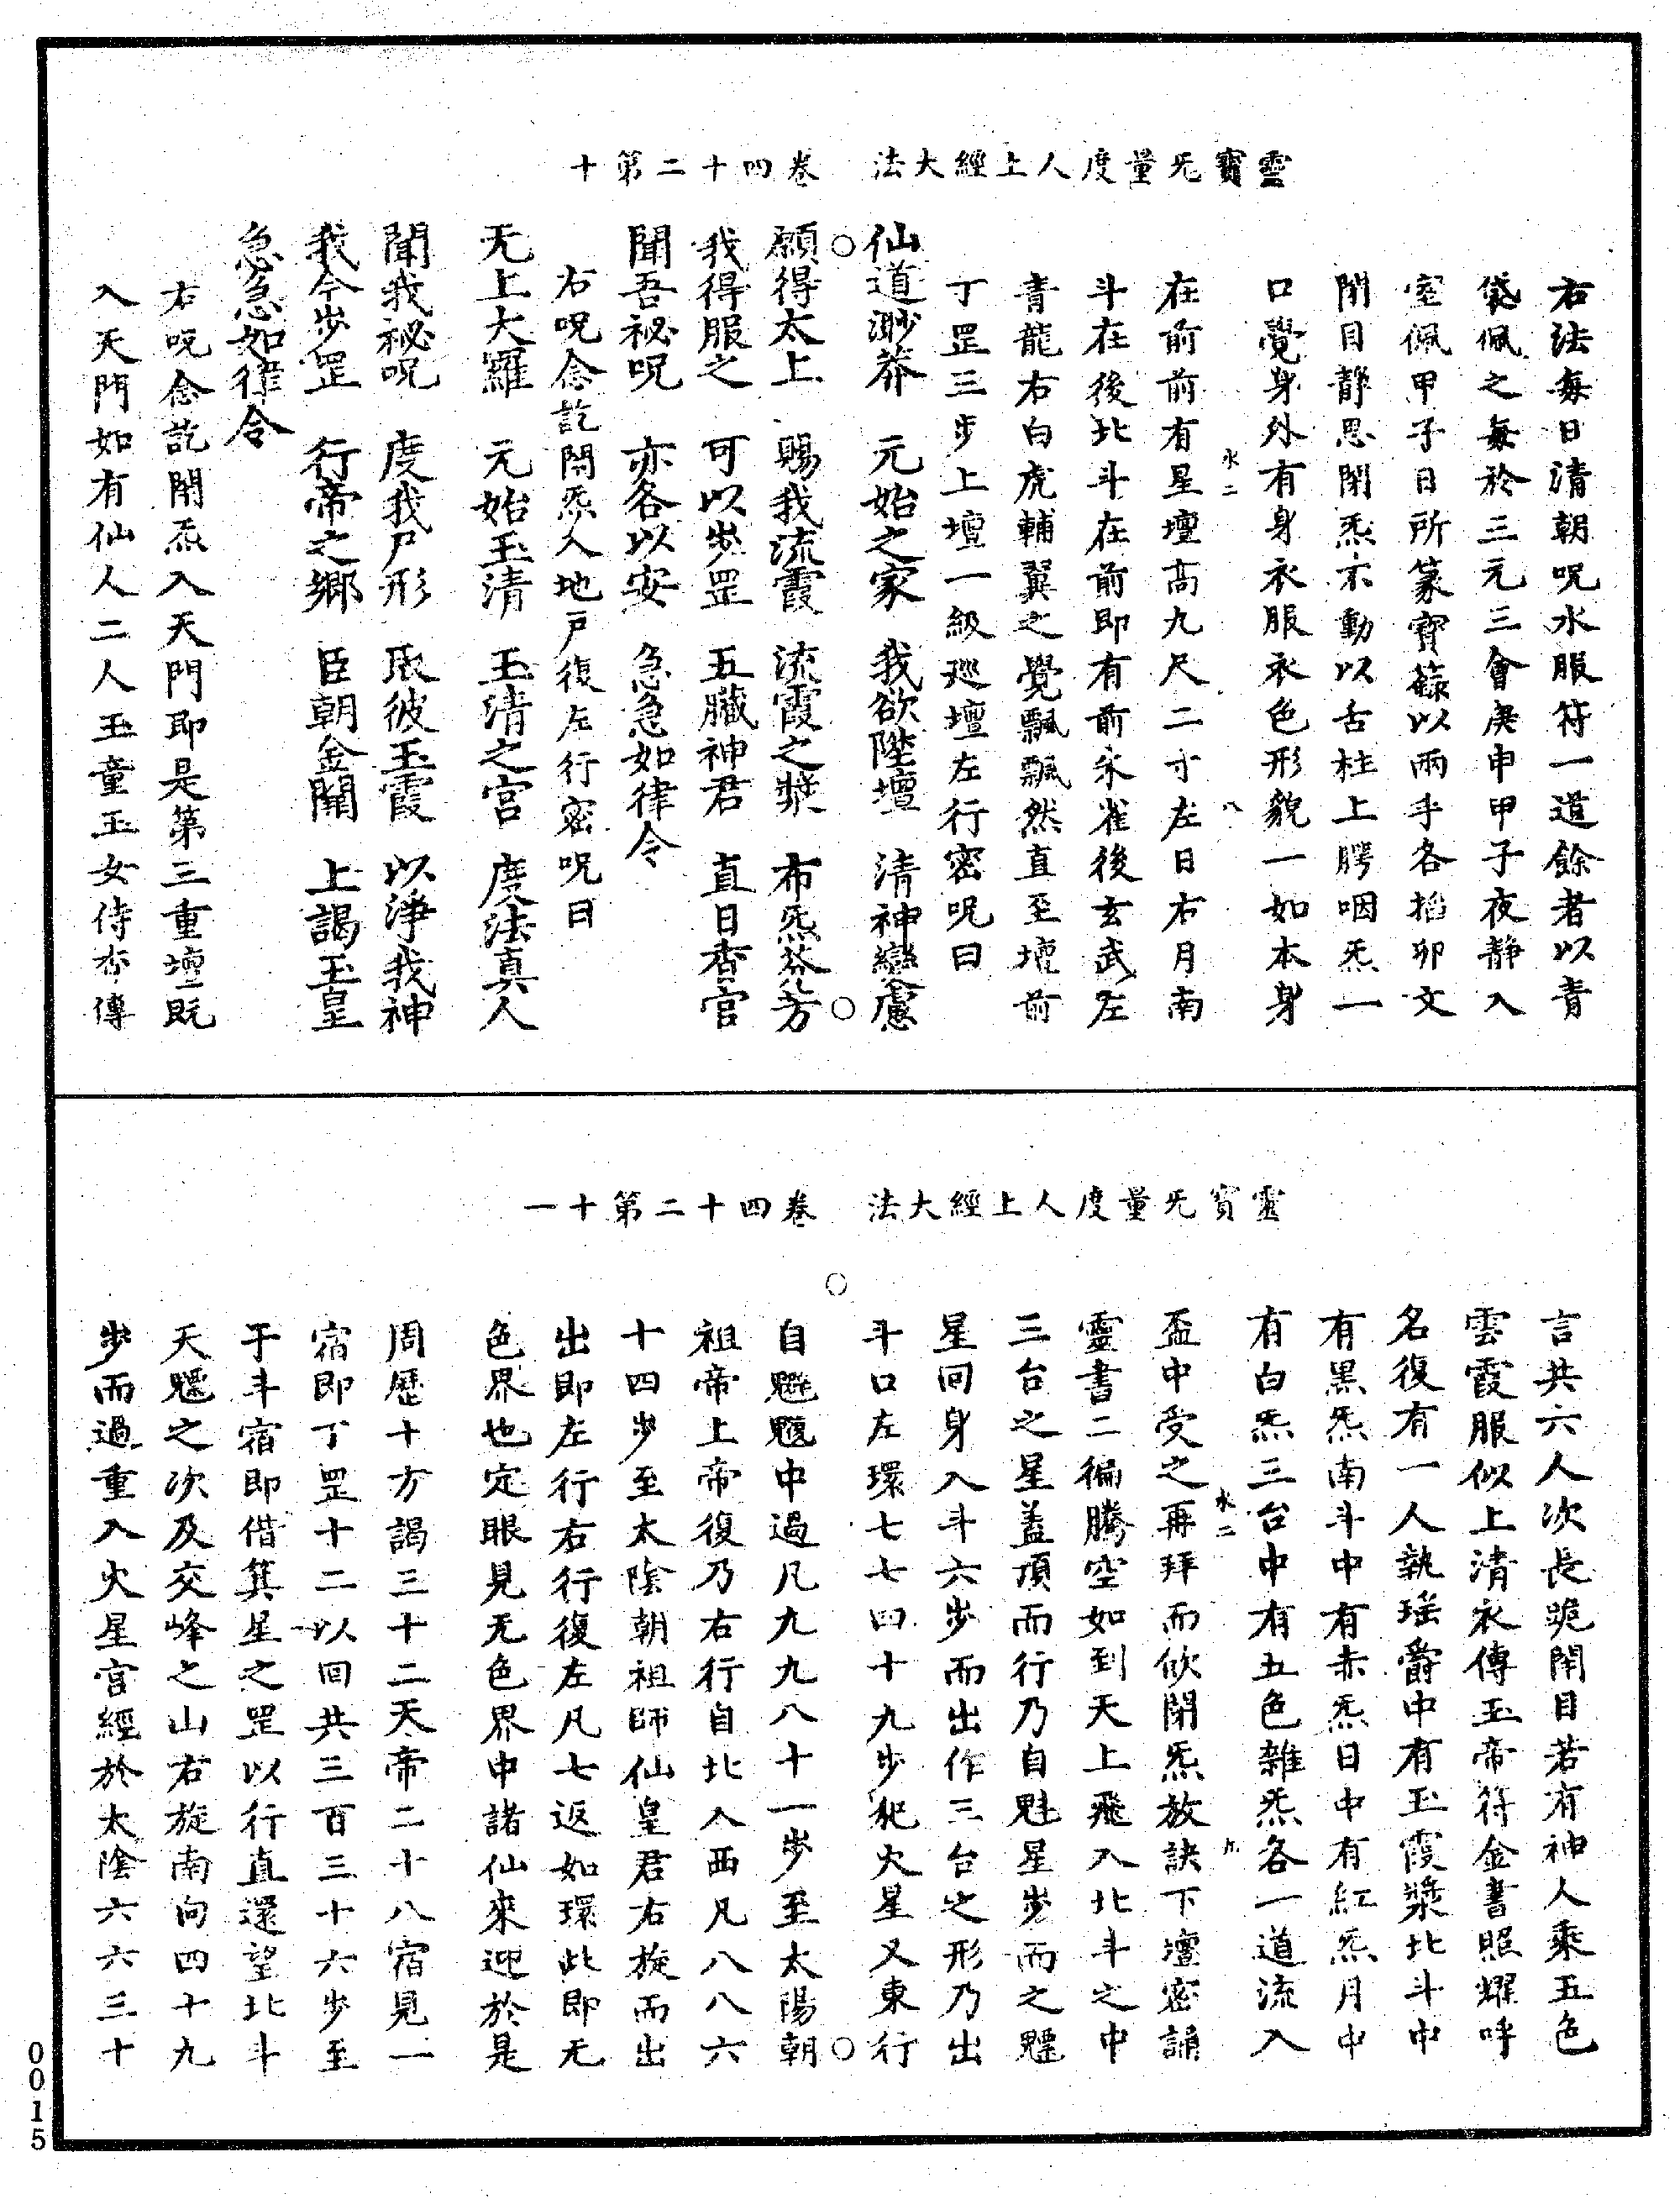 靈寶无量度人上經大法　卷四十二第十
右法每日清朝呪水服符一道餘者以青
袋佩之每於三元三會庚申甲子夜靜入
室佩甲子日所篆寶籙以兩手各掐卯文
閉目靜思閉炁不動以舌柱上腭咽炁一
口覺身外有身衣服衣色形貌一如本身
水二　八
在前前有星壇高九尺二寸左日右月南
斗在後北斗在前即有前朱雀後玄武左
青龍右白虎輔翼之覺飄飄然直至壇前
丁罡三步上壇一級巡壇左行密呪曰
仙道渺莽　元始之家　我欲陞壇　清神戀慮
願得太上　賜我流霞　流霞之漿　布炁芬芳
我得服之　可以步罡　五臟神君　直日香官
聞吾祕呪　亦各以安　急急如律令
右呪念訖閉炁入地戶復左行密呪曰
无上大羅　元始玉清　玉清之宮　度法真人
聞我祕呪　度我尸形　服彼玉霞　以淨我神
我今步罡　行帝之鄉　臣朝金闕　上謁玉皇
急急如律令
右呪念訖閉炁入天門即是第三重壇既
入天門如有仙人二人玉童玉女侍香傳
靈寶无量度人上經大法　卷四十二第十一
言共六人次長跪閉目若有神人乘五色
雲霞服似上清衣傳玉帝符金書照耀呼
名復有一人執瑤爵中有玉霞漿北斗中
有黑炁南斗中有赤炁日中有紅炁月中
有白炁三台中有五色雜炁各一道流入
水二　九
盃中受之再拜而飲閉炁放訣下壇密誦
靈書二徧騰空如到天上飛入北斗之中
三台之星蓋頂而行乃自魁星步而之魒
星回身入斗六步而出作三台之形乃出
斗口左環七七四十九步犯火星又東行
自魁魒中過凡九九八十一步至太陽朝
祖帝上帝復乃右行自北入西凡八八六
十四步至太陰朝祖師仙皇君右旋而出
出即左行右行復左凡七返如環此即无
色界也定眼見无色界中諸仙來迎於是
周歷十方謁三十二天帝二十八宿見一
宿即丁罡十二以回共三百三十六步至
于斗宿即借箕星之罡以行直還望北斗
天魒之次及交峰之山右旋南向四十九
步而過重入火星宮經於太陰六六三十
0015